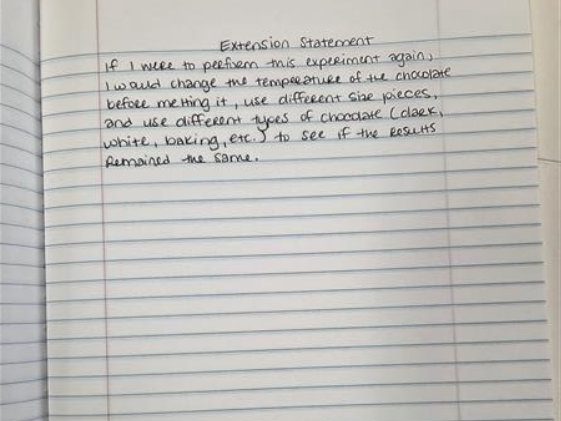 Extension Statement
If I were to perform this experiment again,
I would change the temperature of the chocolate
before melting it, use different size pieces,
and use different types of chocolate (dark,
white, baking, etc.) to see if the results
remained the same.